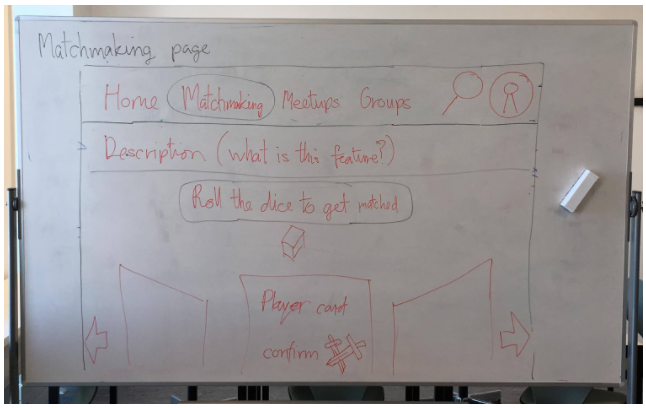 Matchmaking page
Home Matchmaking Meetups Groups
Description (what is this feature?)
Roll the dice to get matched
Player card
confirm